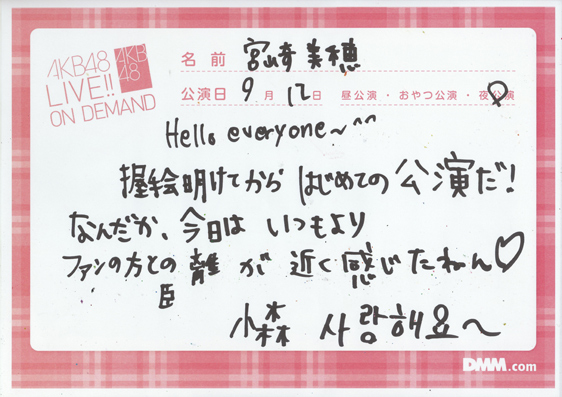 AKB48
LIVE!!
ON DEMAND
AKB
48
名前 宮崎美穂
公演日 9月12日 昼公演・おやつ公演・夜公演
Hello everyone~^^
握会明けてからはじめての公演だ!
なんだか、今日はいつもより
ファンの方との距離が近く感じたねん♡
小森 사랑해요~
DMM.com